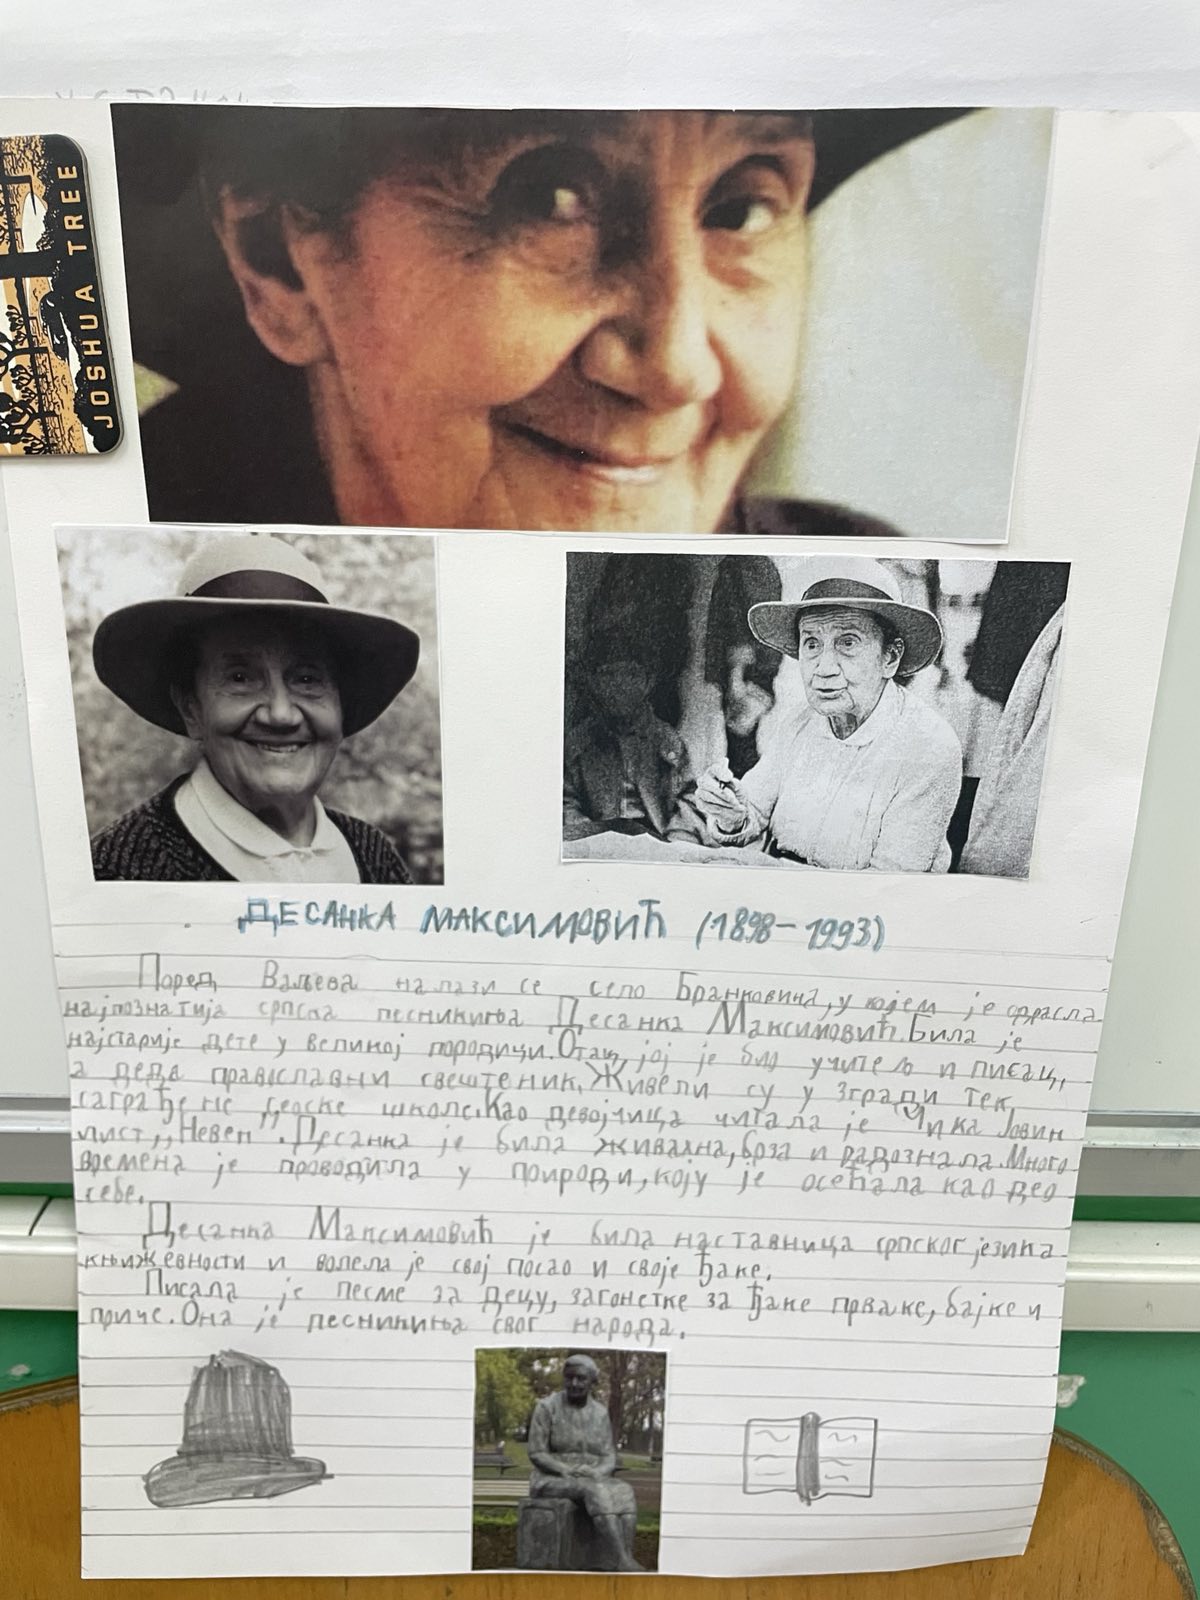 JOSHUA TREE
ДЕСАНКА МАКСИМОВИЋ (1898-1993)
Поред Ваљева налази се село Бранковина, у којем је одрасла
најпознатија српска песникиња Десанка Максимовић. Била је
најстарије дете у великој породици. Отац јој је био учитељ и писац,
а деда православни свештеник. Живели су у згради тек
саграђене сеоске школе. Као девојчица читала је Чика Јовин
лист „Невен”. Десанка је била живахна, брза и радознала. Много
времена је проводила у природи, коју је осећала као део
себе.
Десанка Максимовић је била наставница српског језика
књижевности и волела је свој посао и своје ђаке.
Писала је песме за децу, загонетке за ђаке прваке, бајке и
приче. Она је песникиња свог народа.